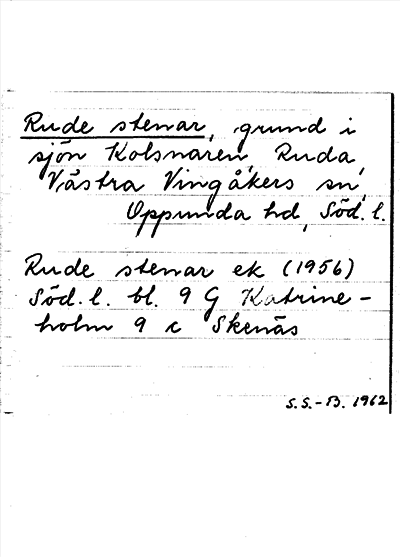 Rude stenar, grund i
sjön Kolsnaren, Ruda,
Västra Vingåkers sn,
Oppunda hd, Söd. l.
Rude stenar ek (1956)
Söd. l. bl. 9 G Katrine-
holm 9 c Skenäs
S.S.-B. 1962